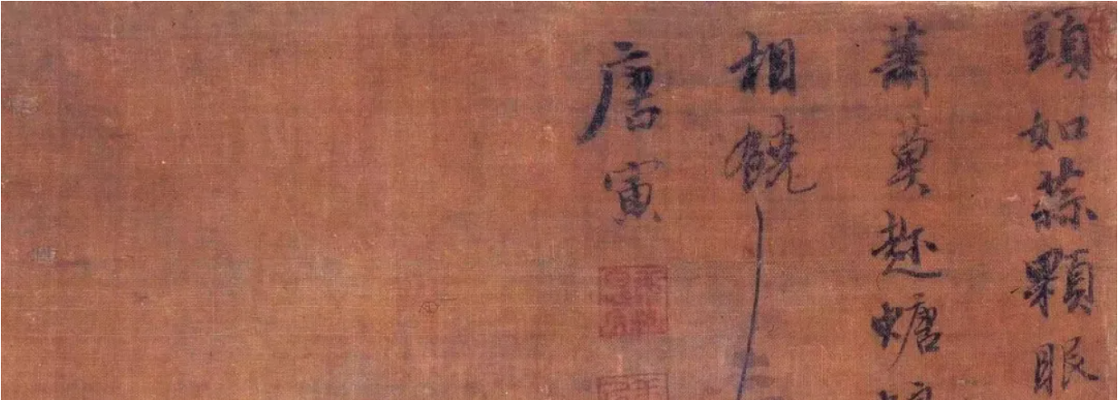 頭如蒜顆眼
蕭莫趂螗
相饒
唐寅